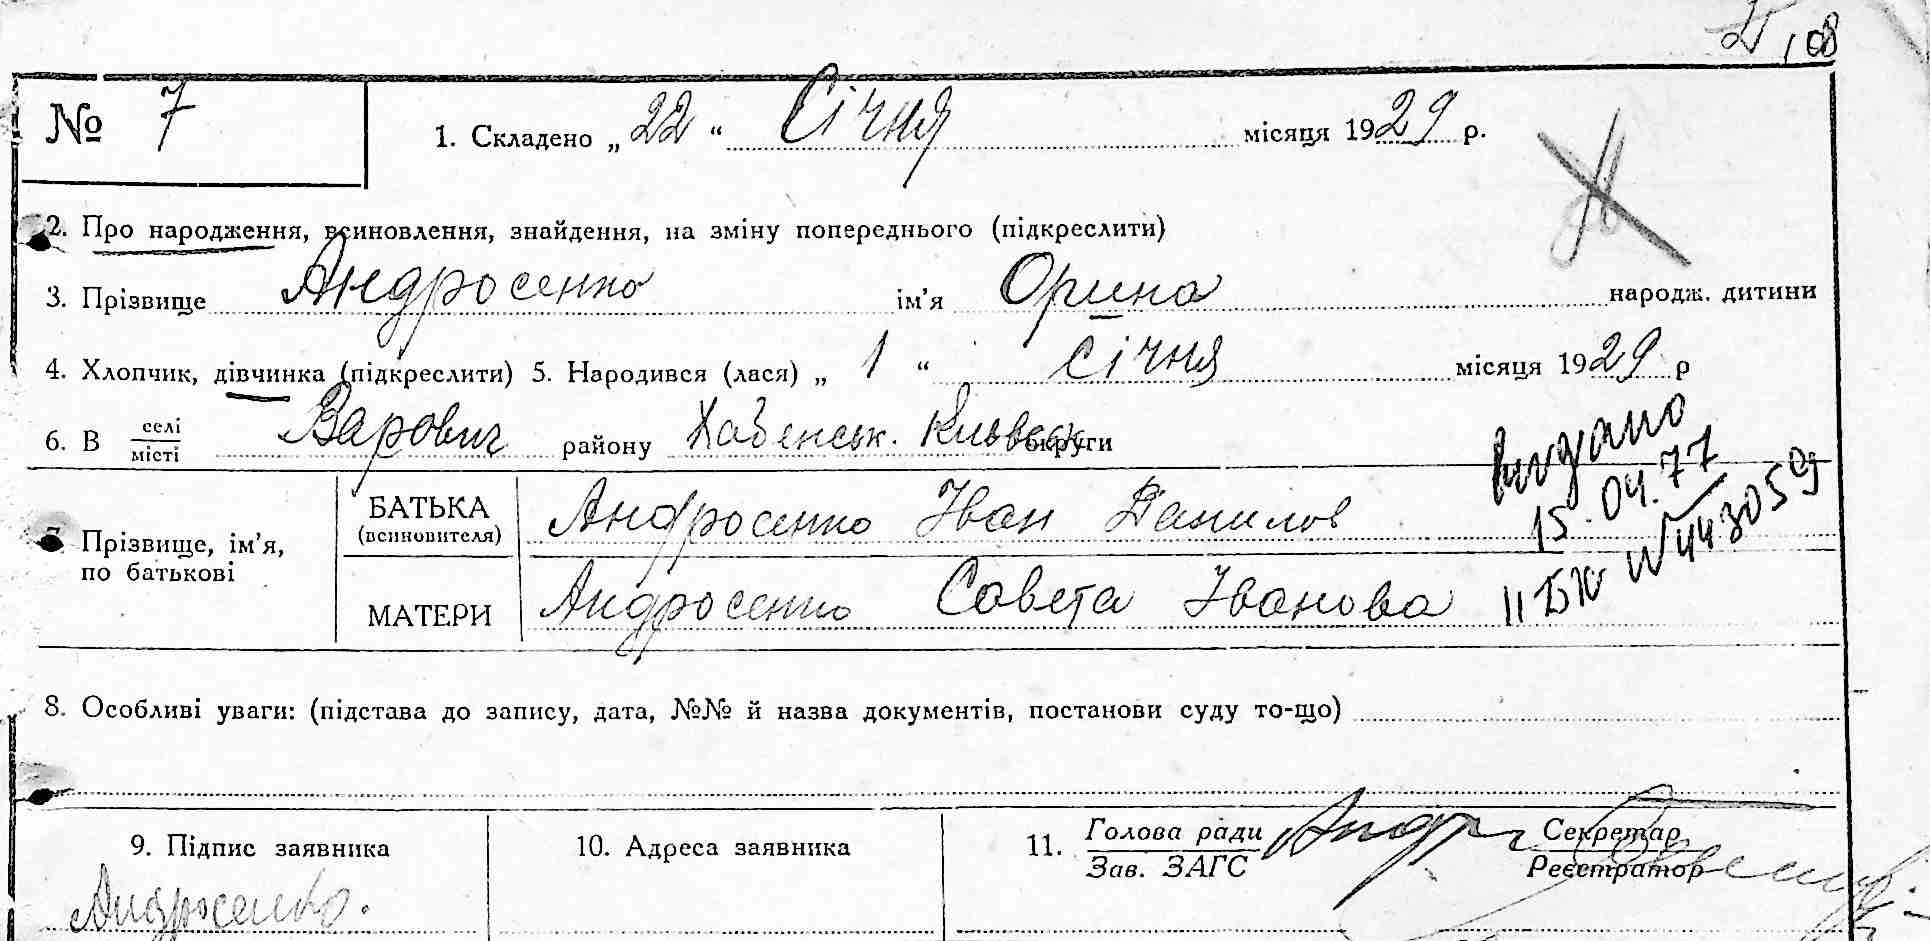 № 7
1. Складено „ 22 “ Січня місяця 1929 р.
2. Про народження, всиновлення, знайдення, на зміну попереднього (підкреслити)
3. Прізвище Андросенко ім’я Орина народж. дитини
4. Хлопчик, дівчинка (підкреслити) 5. Народився (лася) „ 1 “ січня місяця 1929 р
6. В селі місті Варович району Хабенськ. Київськ округи
7. Прізвище, ім’я, по батькові
БАТЬКА (всиновителя) Андросенко Іван Данилов
МАТЕРИ Андросенко Савета Іванова
видано
15.04.77
II БК № 443059
8. Особливі уваги: (підстава до запису, дата, №№ й назва документів, постанови суду то-що)
9. Підпис заявника
10. Адреса заявника
11. Голова ради Зав. ЗАГС
Секретар Реєстратор
Андросенко.